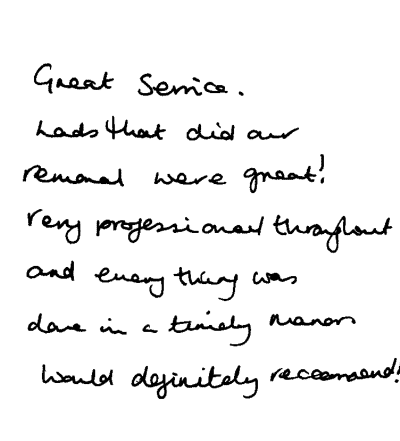 Great Service.
Lads that did our
removal were great!
very professional throughout
and everything was
done in a timely manor
would definitely recommend!